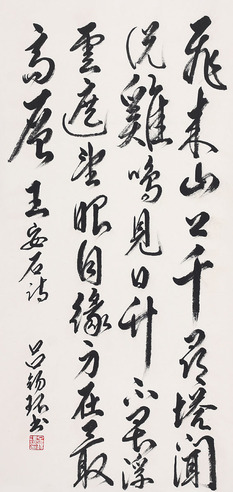 飛来山上千尋塔聞
说雞鳴見日升不畏浮
雲遮望眼自緣身在最
高層 王安石詩 吕书